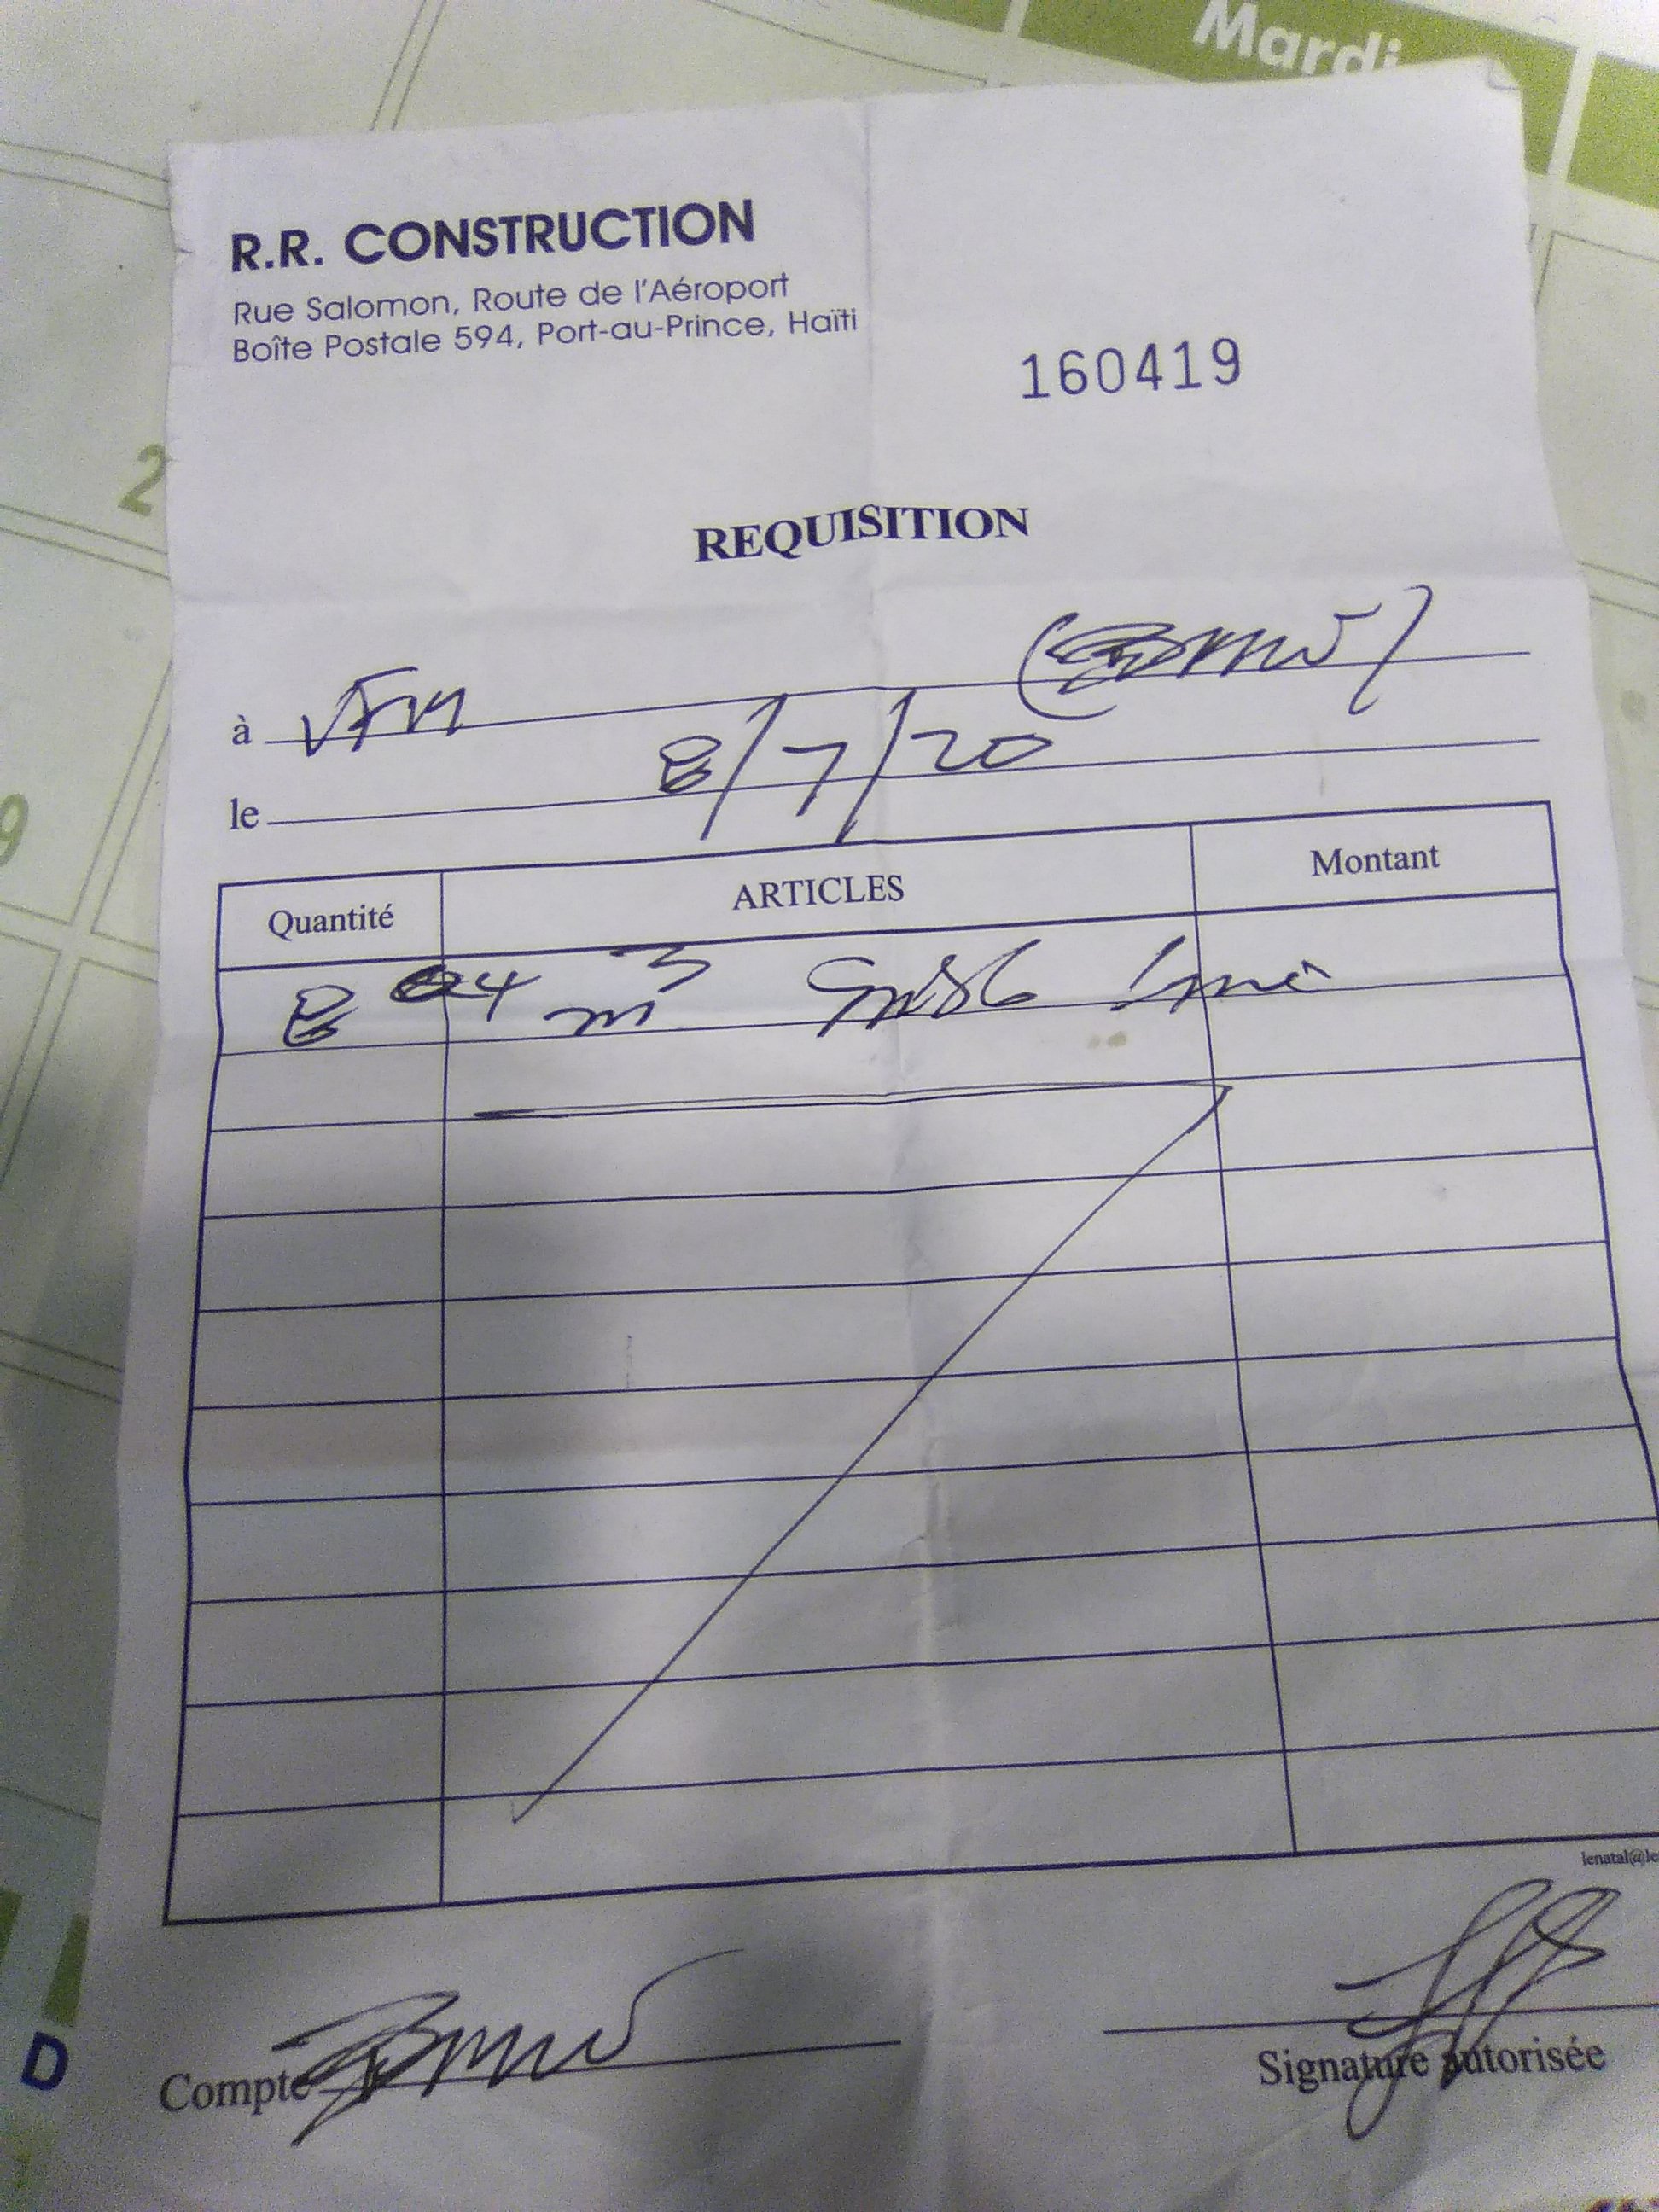 Mardi
R.R. CONSTRUCTION
Rue Salomon, Route de l'Aéroport
Boîte Postale 594, Port-au-Prince, Haïti
160419
2
REQUISITION
à VFM
le 8/7/20
9
Quantité ARTICLES Montant
8 m3
lenatal@le
Compte
Signature autorisée
D